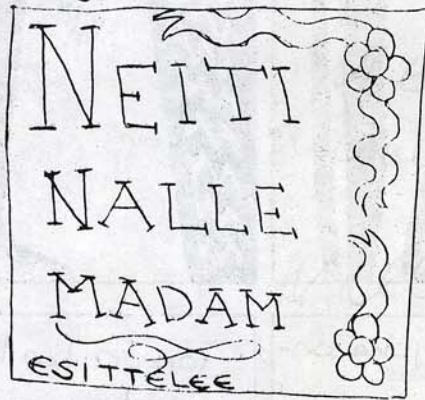 NEITI
NALLE
MADAM
ESITTELEE